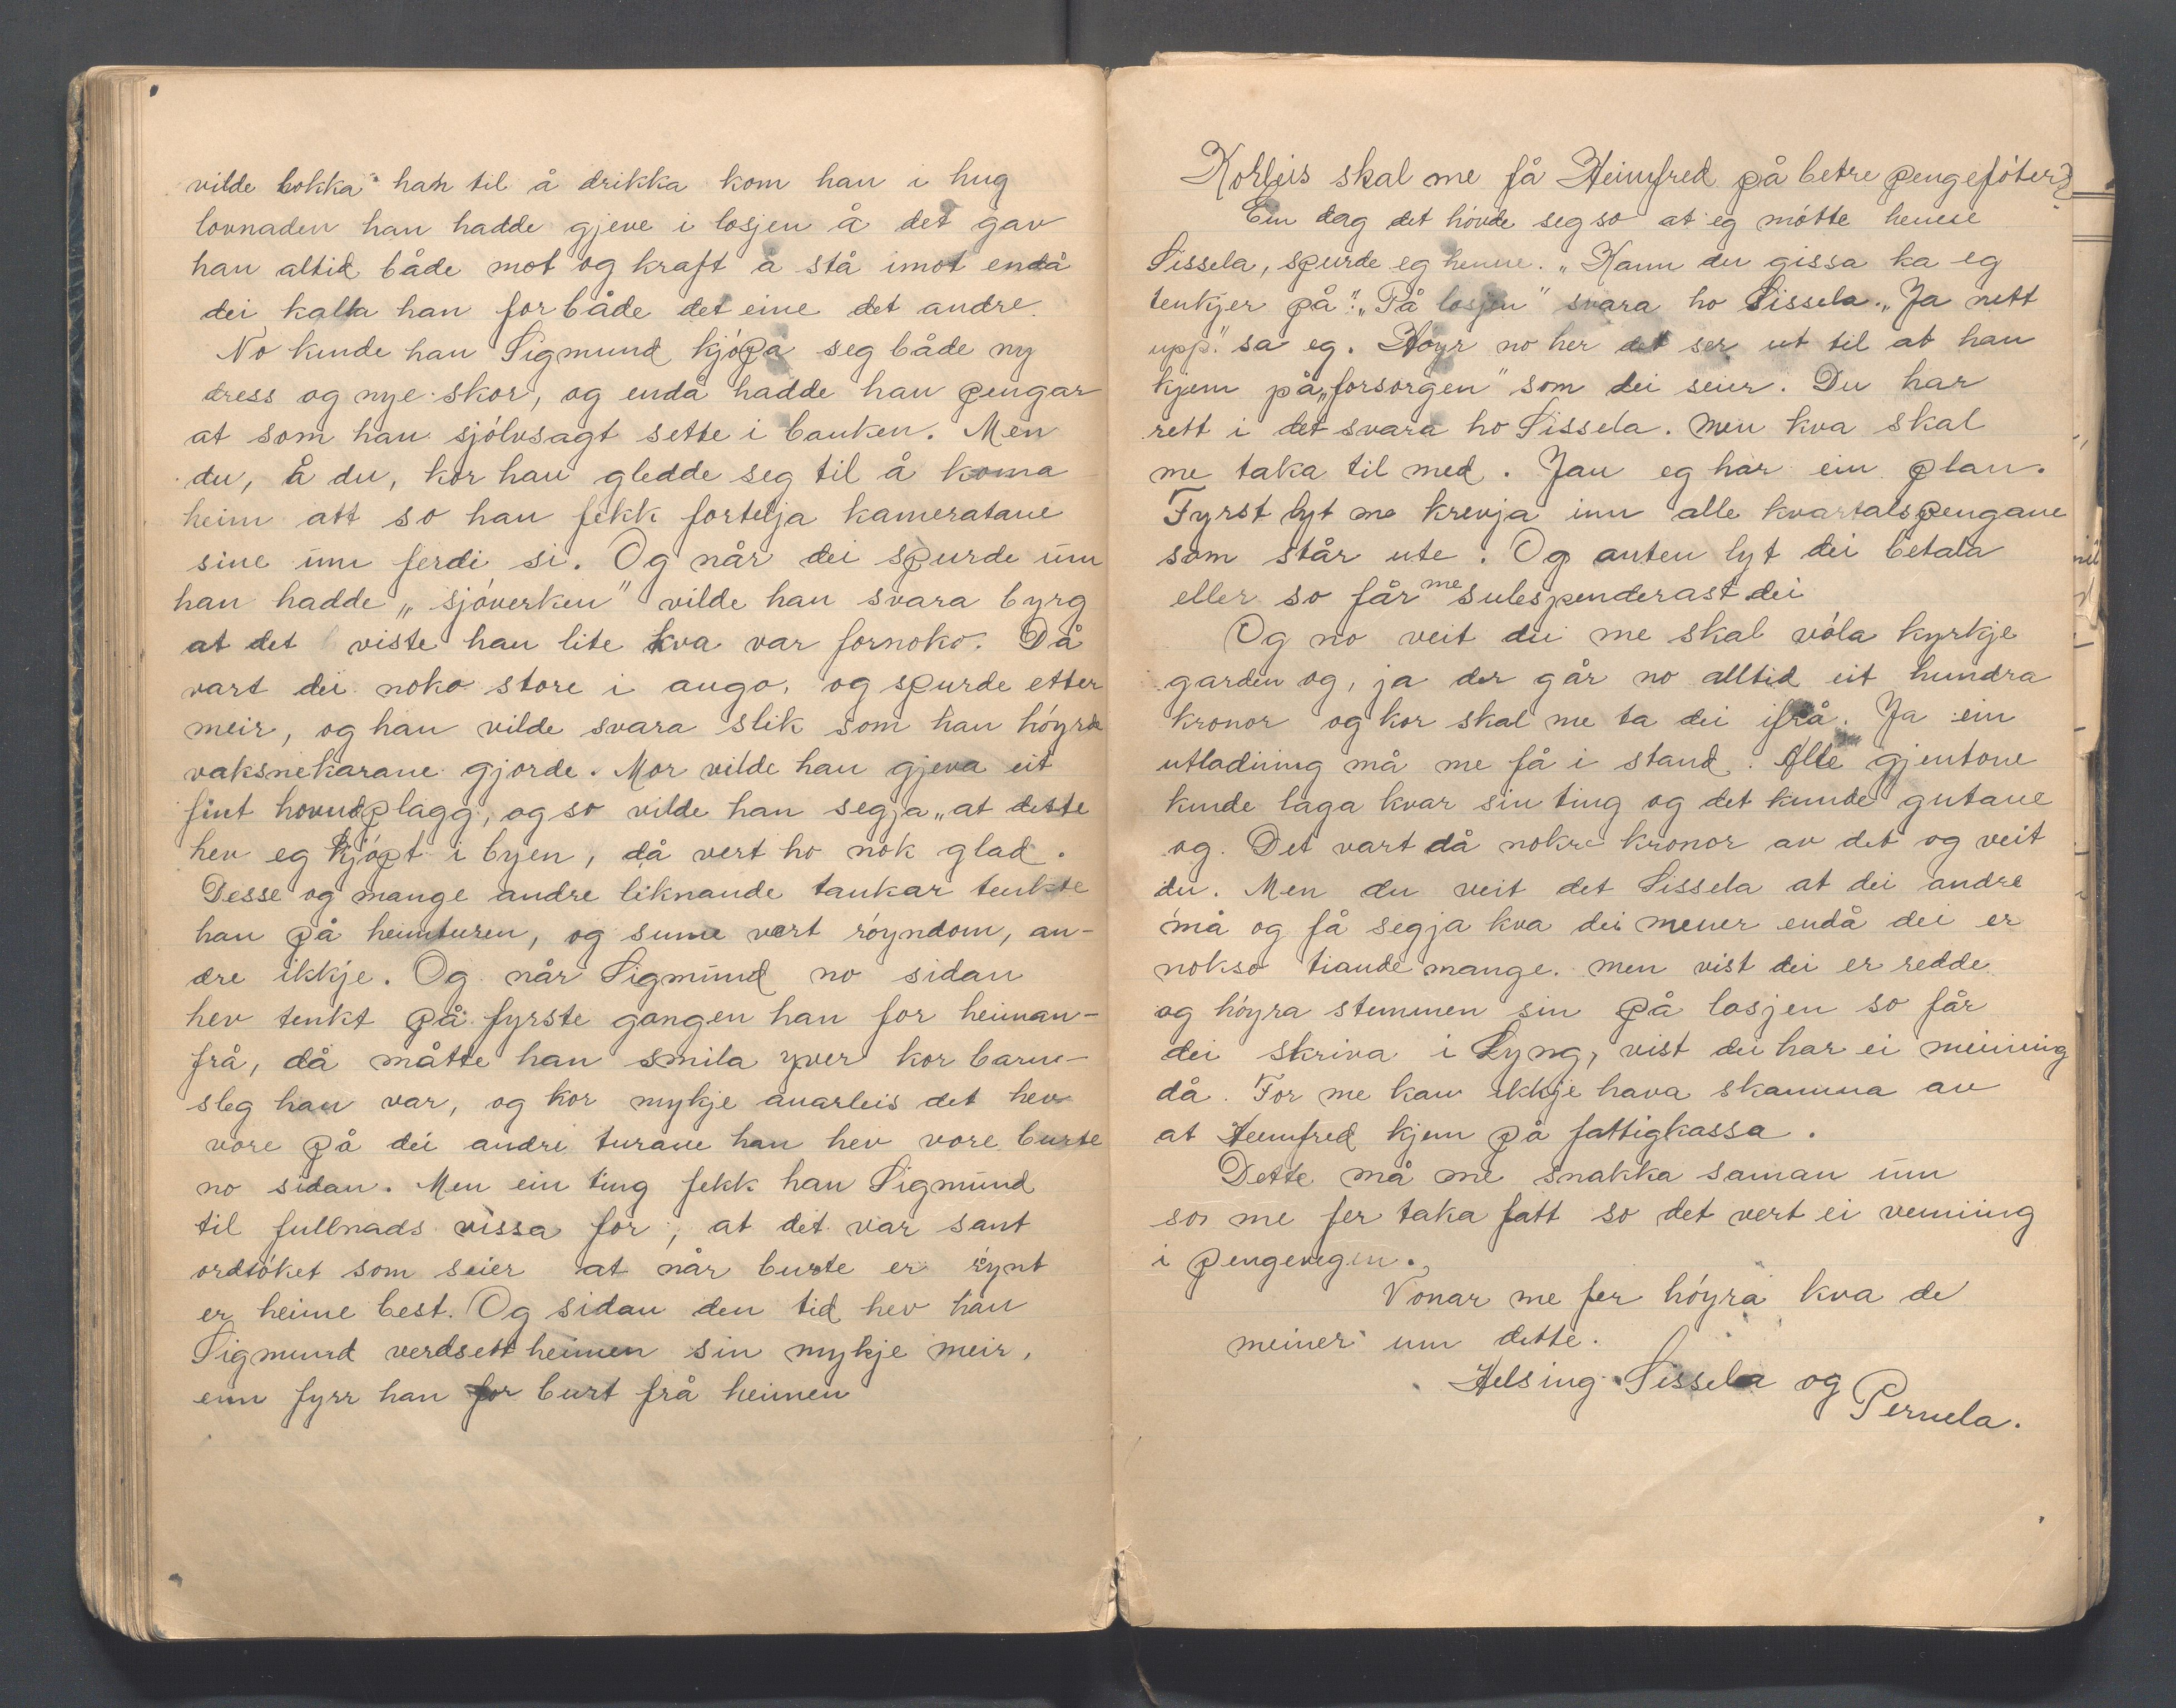 vilde lokka han til å drikka kom han i hug
lovnaden han hadde gjeve i losjen å det gav
han altid både mot og kraft å stå imot endå
dei kalla han for både det eine det andre.
No kunde han Sigmund kjópa seg både ny
dress og nye skor, og endå hadde han pengar
at som han sjólvsagt sette i banken. Men
du, å du, kor han gledde seg til å koma
heim att so han fekk fortelja kameratane
sine um ferdi si. Og når dei spurde um
han hadde „sjóverken" vilde han svara byrg
at det viste han lite kva var fornoko. Då
vart dei noko store i augo, og spurde etter
meir, og han vilde svara slik som han hóyrde
vaksnekarane gjorde. Mor vilde han gjeva eit
fint hovudplagg, og so vilde han segja „at dette
hev eg kjópt i byen, då vert ho nok glad.
Desse og mange andre liknande tankar tenkte
han på heimturen, og sume vart róyndom, an-
dre ikkje. Og når Sigmund no sidan
hev tenkt på fyrste gongen han for heiman-
frå, då måtte han smila yver kor barns-
sleg han var, og kor mykje anarleis det hev
vore på dei andre turane han hev vore burte
no sidan. Men ein ting fekk han Sigmund
til fullnads vissa for, at det var sant
ordtóket som seier at når burte er rýnt
er heime best. Og sidan den tid hev han
Sigmund verdsett heimen sin mykje meir,
enn fyrr han for burt frå heimen
Korleis skal me få Heimfred på betre pengefóter?
Ein dag det hóvde seg so at eg mótte henne
Sissela, spurde eg henne. „Kann du gissa ka eg
tenkjer på". „På losjen" svara ho Sissela. „Ja nett
upp." sa eg. Hóyr no her det ser ut til at han
kjem på „forsorgen" som dei seier. Du har
rett i det svara ho Sissela. Men kva skal
me taka til med. Jau eg har ein plan.
Fyrst lyt me krevja inn alle kvartalspengane
som står ute. Og anten lyt dei betala
eller so får me sulespenderast dei
Og no veit dei me skal vóla kyrkje
garden og, ja der går no alltid eit hundra
kronor og kor skal me ta dei ifrå. Ja ein
utlodning må me få i stand. Alle gjentone
kunde laga kvar sin ting og det kunde gutane
og. Det vart då nokre kronor av det og veit
du. Men du veit det Sissela at dei andre
må og få segja kva dei mener endå dei er
nokso tiande mange. Men vist dei er redde
og hóyra stemmen sin på losjen so får
dei skriva i Lyng, vist dei har ei meining
då. For me kan ikkje hava skamma av
at Heimfred kjem på fattigkassa.
Dette må me snakka saman um
so me fer taka fatt so det vert ei venning
i pengevegen.
Vonar me fer hóyra kva de
meiner um dette.
Helsing Sissela og
Pernela.